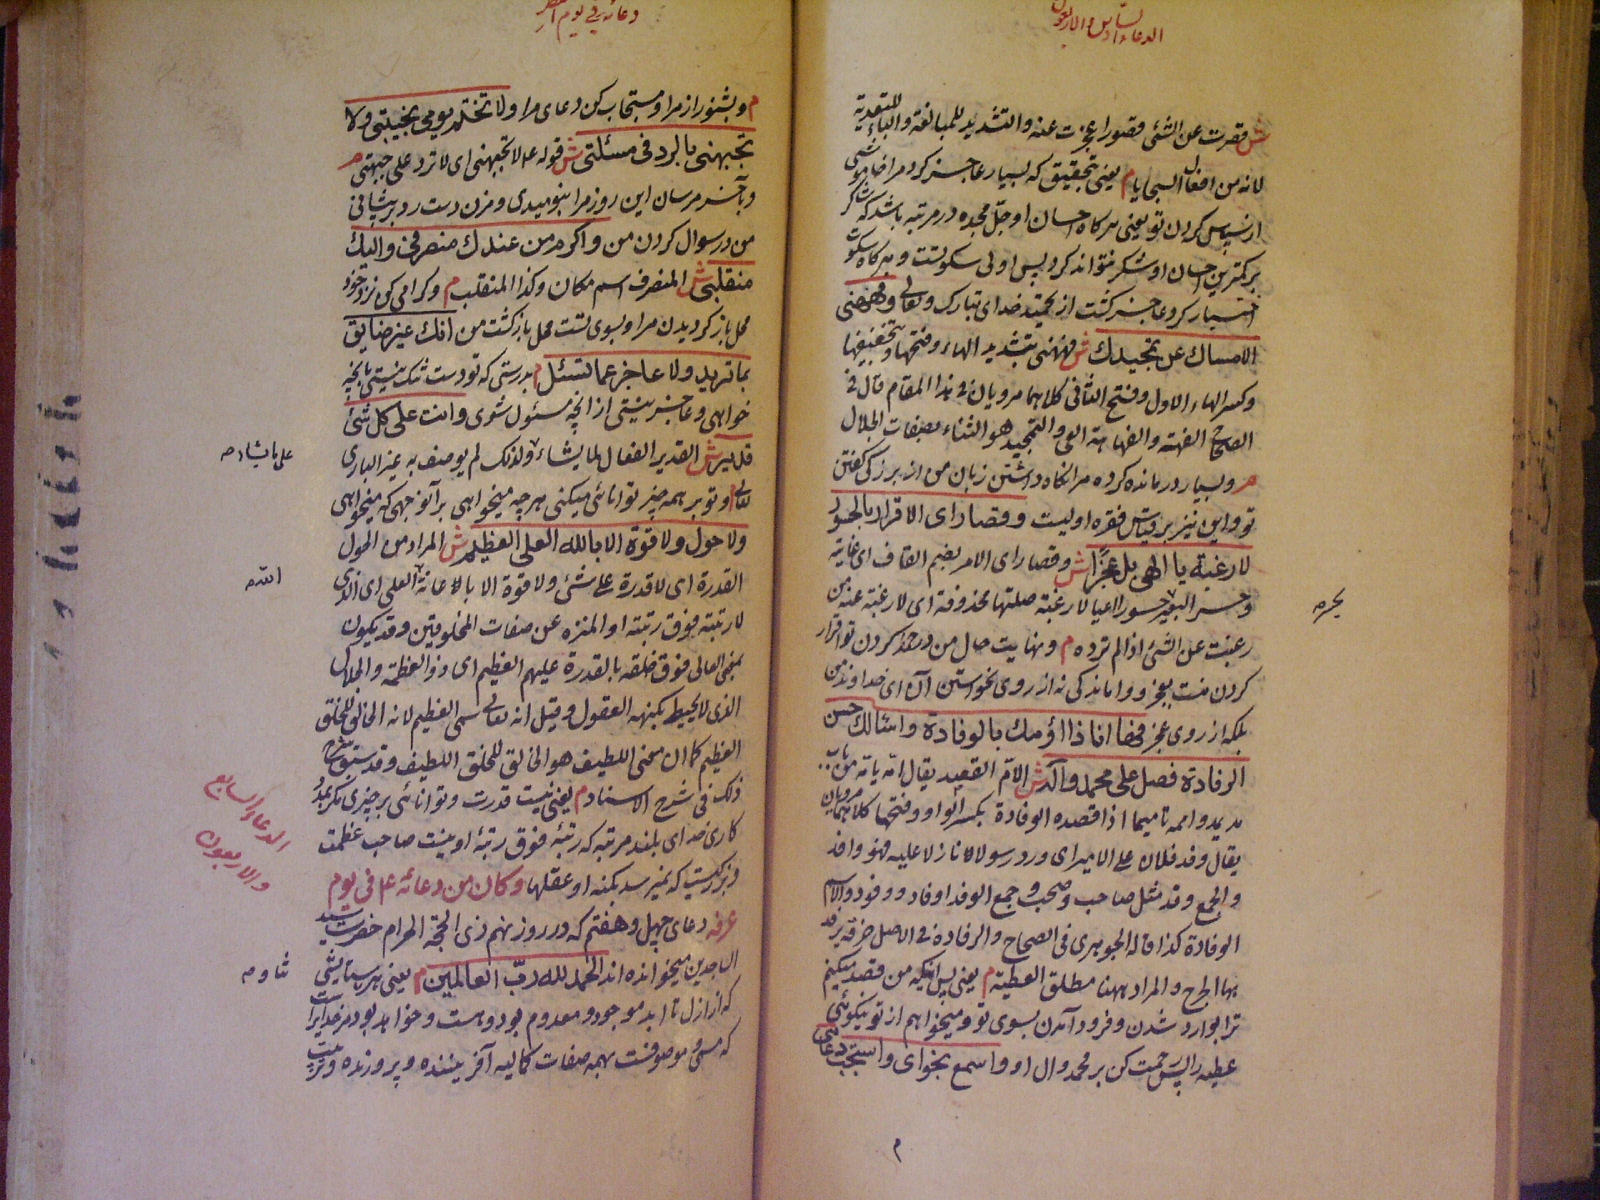 الدعاء السادس والاربعون
ش قصرت عن الشئ قصورا عجزت عنه والتشديد للمبالغة والباء للتعدية
لانه من افعال السجايا م يعنى بتحقيق كه بسيار عاجز كرد مرا خاموشى
از سپاس كردن تو يعنى هر كاه احسان او جل مجده در مرتبه باشد كه شاكر
بر كمترين احسان او شكر نتواند كرد پس اولى سكوتست و هر كاه سكوت
اختيار كرد عاجز كشت از تحميد خداى تبارك وتعالى وفههنى
الامساك عن تمجيدك ش فههنى بتشديد الهاء وفتحها وبتخفيفها
وكسر الهاء الاول وفتح الثانى كلاهما مرويان فى هذا المقام قال فى
الصحاح الفهة والفهاهة العى والتمجيد هو الثناء بصفات الجلال
م وبسيار درمانده كرده مرا نكاه داشتن زبان من از بزركى كفتن
تو و اين نيز بر قياس فقره اوليست وقصاراى الاقرار بالحسور
لا رغبة يا الهى بل عجزا ش وقصاراى الامر بضم القاف اى غايته
وحسر البعير حسورا اعيا لا رغبة صلتها محذوفة اى لا رغبة عنه من
بحره
رغبت عن الشئ اذا لم ترده م ونهايت حال من در حمد كردن تو اقرار
كردن منست بعجز و واماندكى نه از روى نخواستن آن اى خداوند من
بلكه از روى عجز فها انا ذا اؤمك بالوفادة واسئالك حسن
الرفادة فصل على محمد وآله ش الامّ القصد يقال امّه يامّه من باب
مد يمد وامه تاميما اذا قصده الوفادة بكسر الواو وفتحها كلاهما مرويان
يقال وفد فلان على الامير اى ورد رسولا نازلا عليه فهو وافد
والجمع وفد مثل صاحب وصحب وجمع الوفد اوفاد ووفود والاسم
الوفادة كذا قاله الجوهرى فى الصحاح والرفادة فى الاصل خرقة يرفد
بها الجرح والمراد ههنا مطلق العطية م يعنى پس اينكه من قصد ميكنم
ترا بوارد شدن و فرود آمدن بسوى تو و ميخواهم از تو نيكوئى
عطيه را پس رحمت كن بر محمد وال او واسمع نجواى واستجب دعائى
دعائه فى يوم الفطر
م و بشنو راز مرا و مستجاب كن دعاى مرا ولا تختم يومى بخيبتى ولا
تجبهنى بالرد فى مسئلتى ش قوله ع لا تجبهنى اى لا ترد على جبهتى م
و بآخر مرسان اين روز مرا بنوميدى و مزن دست رد بر پيشانى
من در سوال كردن من واكرم من عندك منصرفى واليك
منقلبى ش المنصرف اسم مكان وكذا المنقلب م و كرامى كن نزد خود
محل باز كرديدن مرا و بسوى تست محل باز كشت من انك غير ضايق
بما تريد ولا عاجز عما تسئل م بدرستى كه تو دست تنك نيستى بانچه
خواهى و عاجز نيستى از انچه مسئول شوى وانت على كل شئ
قدير ش القدير الفعال لما يشاء ولذلك لم يوصف به غير البارى
على ما يشاء م
تعالى م و تو بر همه چيز توانائى ميكنى هر چه ميخواهى بر آنوجهى كه ميخواهى
ولا حول ولا قوة الا بالله العلى العظيم ش المراد من الحول
القدرة اى لا قدرة على شئ ولا قوة الا بالاعانة العلى اى الذى
الله
لا رتبة فوق رتبته او المنزه عن صفات المخلوقين وقد يكون
بمعنى العالى فوق خلقه بالقدرة عليهم العظيم اى ذو العظمة والجلال
الذى لا يحيط بكنهه العقول وقيل انه تعالى سمى العظيم لانه الخالق للخلق
العظيم كما ان معنى اللطيف هو الخالق للخلق اللطيف وقد سبق شرح
ذلك فى شرح الاسناد م يعنى نيست قدرت و توانائى بر چيزى مكر بمدد
الدعاء السابع
والاربعون
كارى خداى بلند مرتبه كه رتبهٔ فوق رتبهٔ او نيست صاحب عظمت
و بزركيست كه نميرسد بكنه او عقلها وكان من دعائه ع فى يوم
عرفه دعاى چهل و هفتم كه در روز نهم ذى الحجة الحرام حضرت سيد
الساجدين ميخوانده اند الحمد لله رب العالمين م يعنى هر ستايشى
ثناء م
كه از ازل تا ابد موجود و معدوم بود و هست و خواهد بود مر خدايراست
كه مسمى و موصوفست بهمه صفات كماليه آفريننده و پرورنده و تربيت